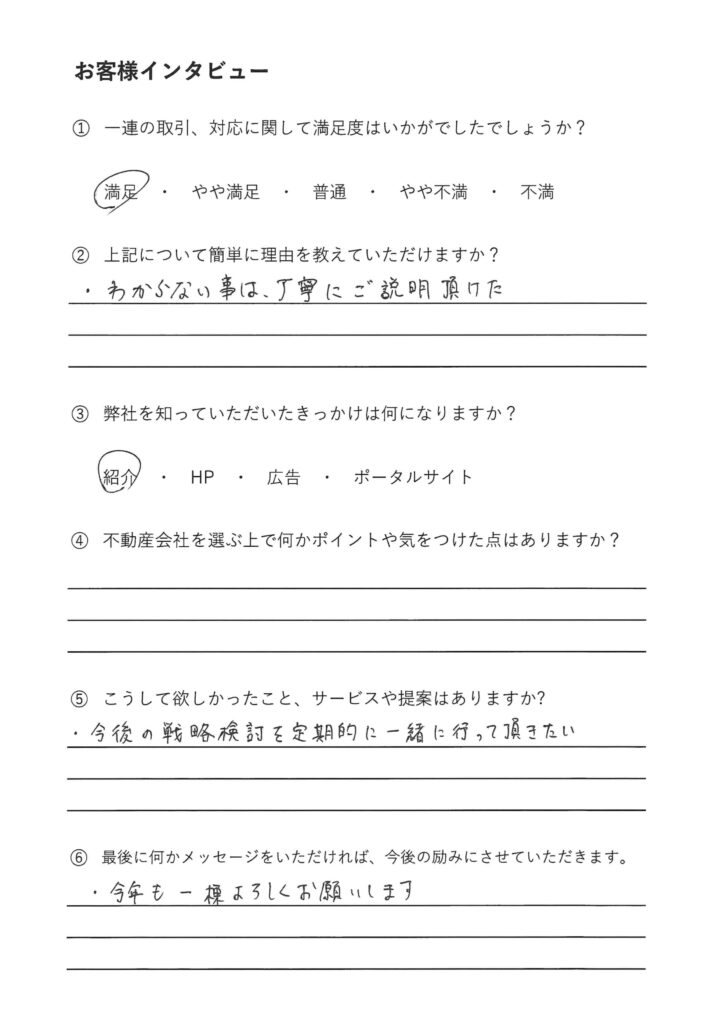 お客様インタビュー
① 一連の取引、対応に関して満足度はいかがでしたでしょうか?
満足 ・ やや満足 ・ 普通 ・ やや不満 ・ 不満
② 上記について簡単に理由を教えていただけますか?
・わからない事は、丁寧にご説明頂けた
③ 弊社を知っていただいたきっかけは何になりますか?
紹介 ・ HP ・ 広告 ・ ポータルサイト
④ 不動産会社を選ぶ上で何かポイントや気をつけた点はありますか?
⑤ こうして欲しかったこと、サービスや提案はありますか?
・今後の戦略検討を定期的に一緒に行って頂きたい
⑥ 最後に何かメッセージをいただければ、今後の励みにさせていただきます。
・今年も一棟よろしくお願いします